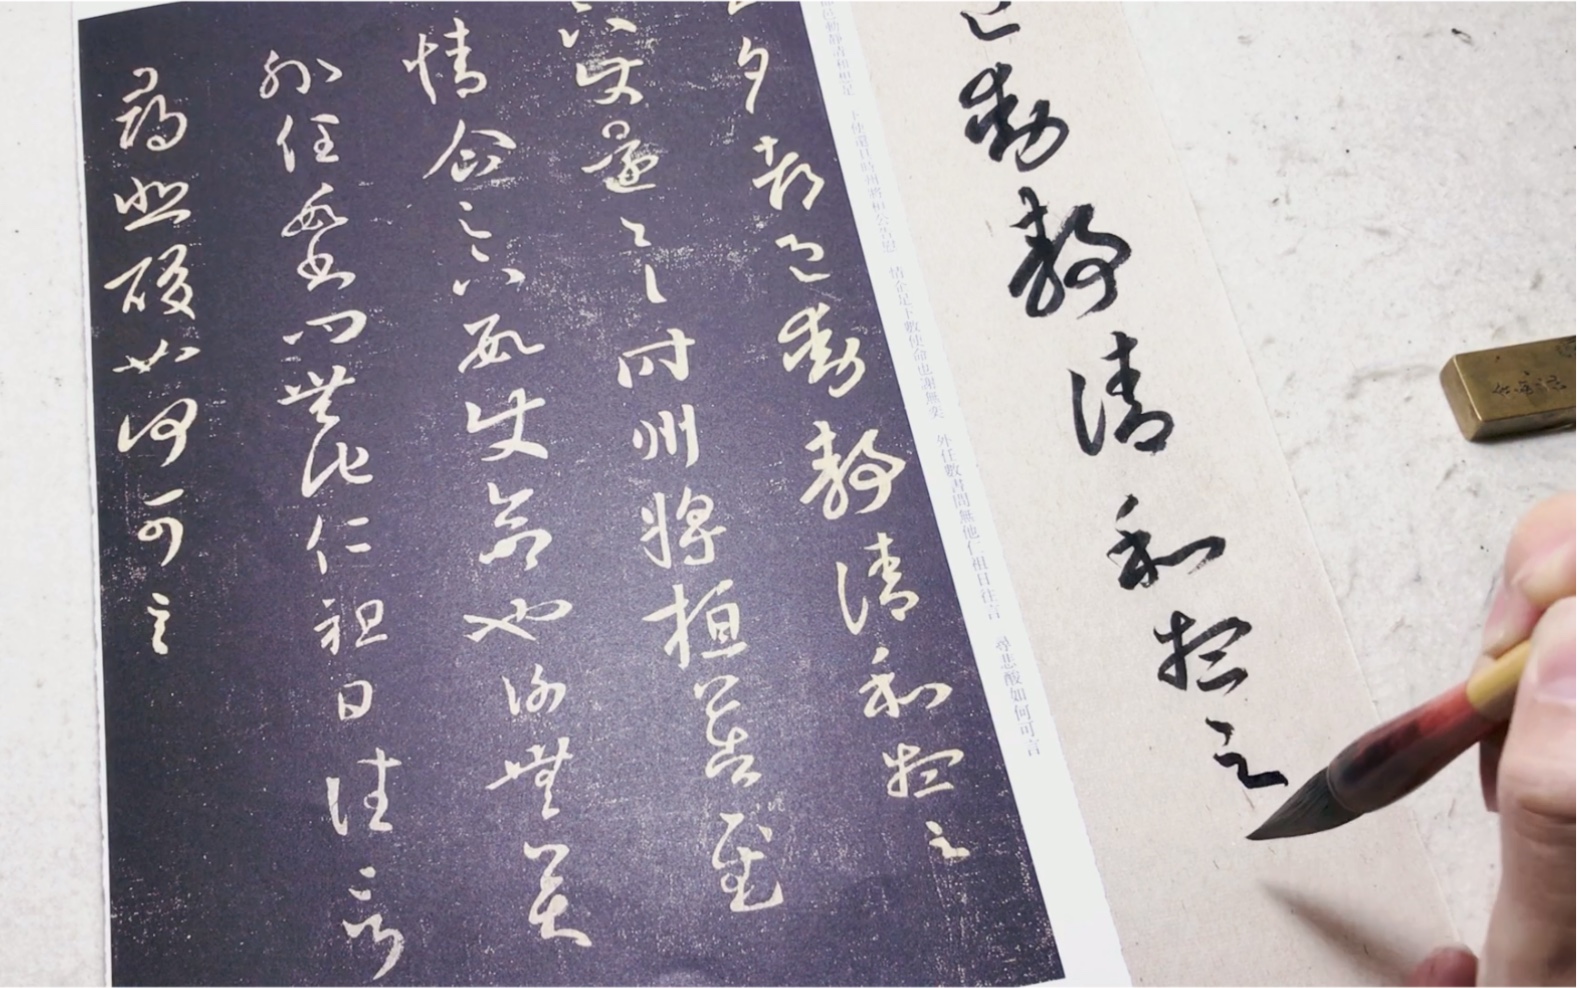 邑動静清和想足
都邑動静清和想足 下使還具時州將桓公告慰 情企足下數使命也謝無奕 外任數書問無他仁祖日往言 尋悲酸如何可言
旦夕都邑動静清和想足
下使還具時州將桓公告慰
情企足下數使命也謝無奕
外任數書問無他仁祖日往言
尋悲酸如何可言